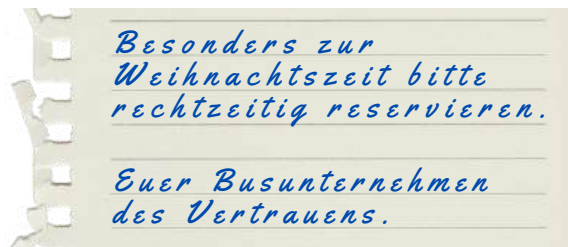 Besonders zur
Weihnachtszeit bitte
rechtzeitig reservieren.
Euer Busunternehmen
des Vertrauens.